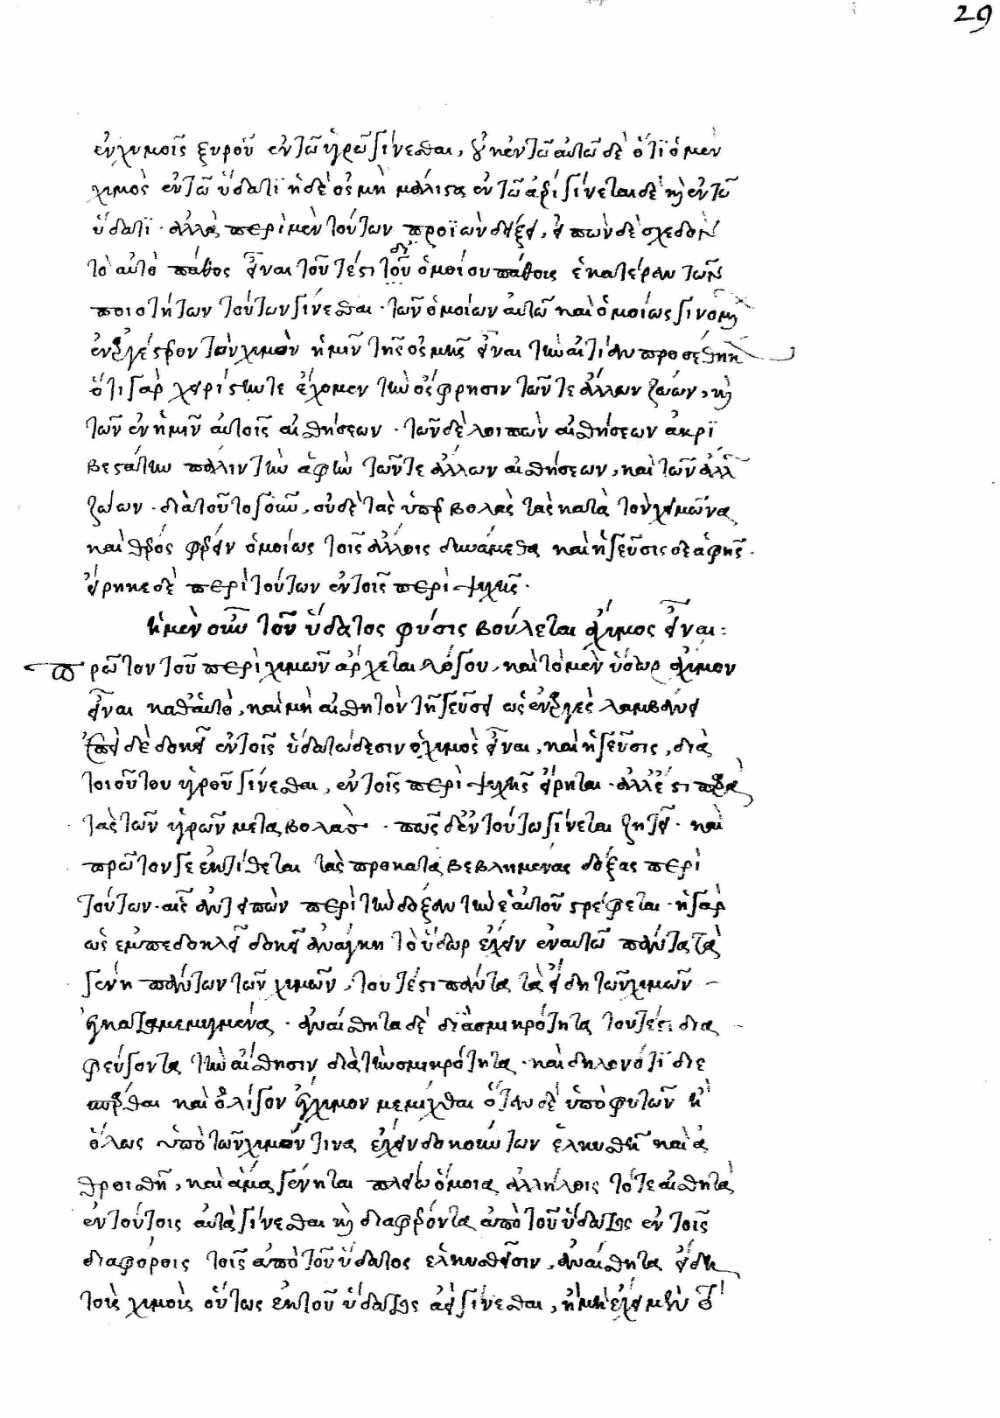 29
ἐγχύμοις ξηροῦ ἐν τῷ ὑγρῷ γίνεσθαι, οὐκ ἐν τῷ αὐτῷ δὲ ὅτι ὁ μὲν
χυμὸς ἐν τῷ ὕδατι ἡ δὲ ὀσμὴ μάλιστα ἐν τῷ ἀέρι γίνεται δὲ καὶ ἐν τῷ
ὕδατι · ἀλλὰ περὶ μὲν τούτων προϊὼν δείξει, εἰπὼν δὲ σχεδὸν
τὸ αὐτὸ πάθος εἶναι τουτέστι τοῦ ὁμοίου πάθους ἑκατέραν τῶν
ποιοτήτων τούτων γίνεσθαι · τῶν ὁμοίων αὐτῶ καὶ ὁμοίως γινομ
ἐναργέστερον τὸν χυμὸν ἡμῖν τῆς ὀσμῆς εἶναι τὴν αἰτίαν προσέθηκε
ὅτι γὰρ χειρίστην τε ἔχομεν τὴν ὄσφρησιν τῶν τε ἄλλων ζώων, καὶ
τῶν ἐν ἡμῖν αὐτοῖς αἰσθήσεων · τῶν δὲ λοιπῶν αἰσθήσεων ἀκρι
βεστάτην πάλιν τὴν ἁφὴν τῶν τε ἄλλων αἰσθήσεων, καὶ τῶν ἄλλ
ζώων · διὰ τοῦτο γοῦν, οὐδὲ τὰς ὑπερβολὰς τὰς κατὰ τὸν χειμῶνας
καὶ θέρος φέρειν ὁμοίως τοῖς ἄλλοις δυνάμεθα καὶ ἡ γεῦσις δὲ ἁφῆς ·
εἴρηκε δὲ περὶ τούτων ἐν τοῖς περὶ ψυχῆς ·
ἡ μὲν οὖν τοῦ ὕδατος φύσις βούλεται ἄχυμος εἶναι :
πρῶτον τοῦ περὶ χυμῶν ἄρχεται λόγου, καὶ τὸ μὲν ὕδωρ ἄχυμον
εἶναι καθ' αὑτὸ, καὶ μὴ αἰσθητὸν τῇ γεύσει ὡς ἐναργὲς λαμβάνει
ἐπεὶ δὲ δοκεῖ ἐν τοῖς ὑδατώδεσιν ὁ χυμὸς εἶναι, καὶ ἡ γεῦσις, διὰ
τοιούτου ὑγροῦ γίνεσθαι, ἐν τοῖς περὶ ψυχῆς εἴρηται · ἀλλ' ἔστι παρὰ
τὰς τῶν ὑγρῶν μεταβολὰς · πῶς δ' ἐν τούτω γίνεται ζητεῖ · καὶ
πρῶτόν γε ἐκτίθεται τὰς προκαταβεβλημένας δόξας περὶ
τούτων · αἷς ἀντειπὼν περὶ τὴν δόξαν τὴν ἑαυτοῦ τρέφεται · ἢ γὰρ
ὡς ἐμπεδοκλεῖ δοκεῖ ἀνάγκη τὸ ὕδωρ ἔχειν ἐν αὑτῷ πάντα τὰ
γένη πάντων τῶν χυμῶν, τουτέστι πάντα τὰ εἴδη τῶν χυμῶν
ἐγκαταμεμιγμένα · ἀναίσθητα δὲ διὰ σμικρότητα τουτέστι δια
φεύγοντα τὴν αἴσθησιν διὰ τὴν σμικρότητα · καὶ δηλονότι διε
σπάρθαι καὶ ὀλίγον ἔγχυμον μεμίχθαι ὅταν δὲ ὑπὸ φυτῶν ἢ
ὅλως ὑπὸ τῶν χυμόν τινα ἔχειν δοκούντων ἑλκυσθῆ καὶ ἀ
θροισθῆ, καὶ ἅμα γένηται πλείω ὅμοια ἀλλήλοις τότε αἰσθητὰ
ἐν τούτοις αὐτὰ γίνεσθαι καὶ διαφέροντα ἀπὸ τοῦ ὕδατος ἐν τοῖς
διαφόροις τοῖς ἀπὸ τοῦ ὕδατος ἑλκυσθεῖσιν, ἀναίσθητα εἴδη
τοὺς χυμοὺς οὕτως ἐκ τοῦ ὕδατος ἀεὶ γίνεσθαι, ἢ μὴ ἔχει μὲν